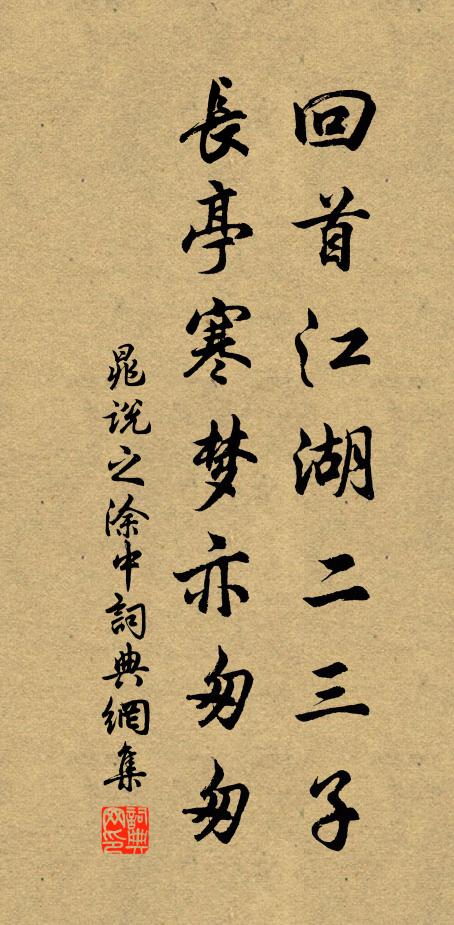 回首江湖二三子
長亭寒梦亦匆匆
晁説之涂中詞典網集
詞典網印